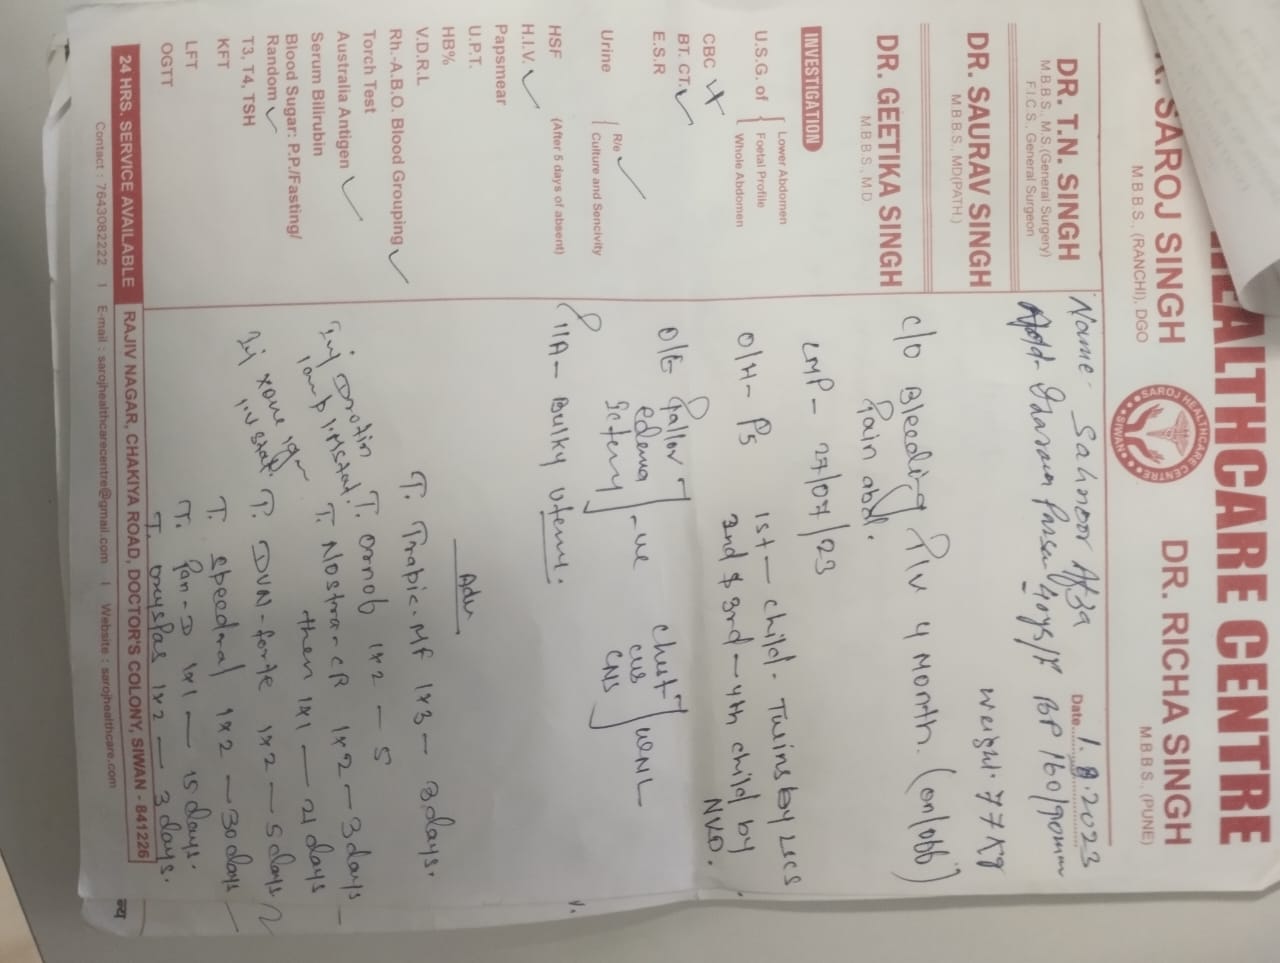 HEALTHCARE CENTRE
SAROJ SINGH
M.B.B.S., (RANCHI), DGO
SAROJ HEALTHCARE CENTRE
SIWAN
DR. RICHA SINGH
M.B.B.S., (PUNE)
DR. T.N. SINGH
M.B.B.S., M.S.(General Surgery)
F.I.C.S., General Surgeon
DR. SAURAV SINGH
M.B.B.S., MD(PATH.)
DR. GEETIKA SINGH
M.B.B.S., M.D.
INVESTIGATION
U.S.G. of { Lower Abdomen
Foetal Profile
Whole Abdomen
CBC
BT. CT. ✓
E.S.R
Urine { R/e ✓
Culture and Sencivity
HSF (After 5 days of absent)
H.I.V. ✓
Papsmear
U.P.T.
HB%
V.D.R.L
Rh.-A.B.O. Blood Grouping ✓
Torch Test
Australia Antigen ✓
Serum Bilirubin
Blood Sugar: P.P./Fasting/
Random ✓
T3, T4, TSH
KFT
LFT
OGTT
Name- Sahnoor Afza Date 1.8.2023
Add- 40ys/F BP 160/90mm
Weight. 77 Kg
c/o Bleeding P/v 4 Month. (on/off)
Pain abd.
LMP - 27/07/23
O/H- P5 1st - child. Twins by LSCS
2nd & 3rd - 4th child by
NVD.
O/E Pallor
edema -ve
Chest
CVS
CNS
P/A- Bulky Uterus.
Adv
T. Trapic-MF 1x3 - 3 days.
T. ornob 1x2 - 5
T. Nostran CR 1x2 - 3 days
then 1x1 - 21 days
T. DVN-forte 1x2 - 5 days
T. 1x2 - 30 days
T. Pan-D 1x1 - 15 days.
T. 1x2 - 3 days.
Inj Drotin
1 amp I.M stat.
Inj Xone 1gm
I.V stat
24 HRS. SERVICE AVAILABLE
RAJIV NAGAR, CHAKIYA ROAD, DOCTOR'S COLONY, SIWAN - 841226
Contact : 7643082222 I E-mail : sarojhealthcarecentre@gmail.com I Website : sarojhealthcare.com